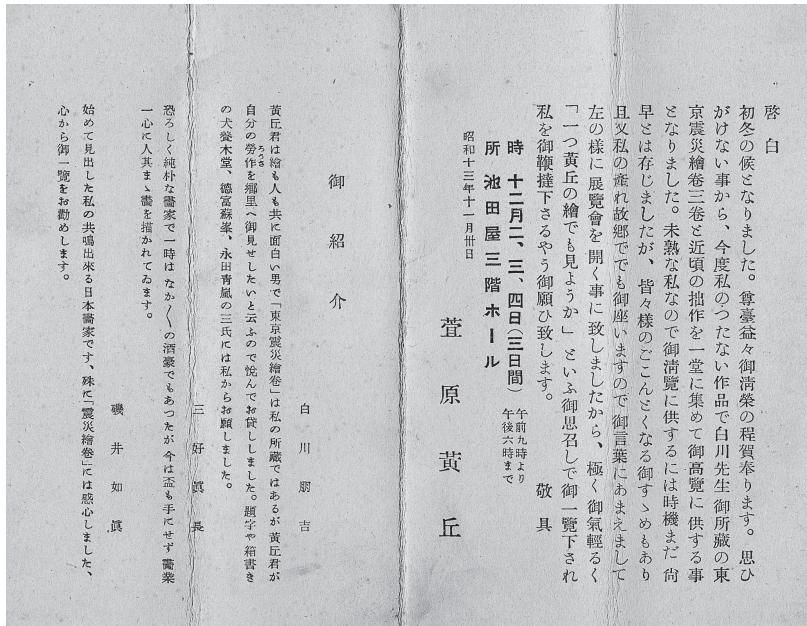 啓白
初冬の候となりました。尊臺益々御淸榮の程賀奉ります。思ひ
がけない事から、今度私のつたない作品で白川先生御所藏の東
京震災繪卷三卷と近頃の拙作を一堂に集めて御高覽に供する事
となりました。未熟な私なので御淸覽に供するには時機まだ尙
早とは存じましたが、皆々樣のごこんとくなる御すゝめもあり
且又私の產れ故鄕でも御座いますので御言葉にあまえまして
左の樣に展覽會を開く事に致しましたから、極く御氣輕るく
「一つ黃丘の繪でも見ようか」といふ御思召しで御一覽下され
私を御鞭撻下さるやう御願ひ致します。 敬具
時 十二月二、三、四日(三日間) 午前九時より 午後六時まで
所 池田屋三階ホール
昭和十三年十一月卅日
萱原黃丘
御紹介
白川朋吉
黃丘君は繪も人も共に面白い男で「東京震災繪卷」は私の所藏ではあるが黃丘君が
自分の勞作を鄕里へ御見せしたいと云ふので悅んでお貸ししました。題字や箱書き
の犬養木堂、德富蘇峯、永田靑嵐の三氏には私からお願しました。
三好眞長
恐ろしく純朴な畵家で一時はなか〳〵の酒豪でもあつたが今は盃も手にせず畵業
一心に人其まゝ畵を描かれてゐます。
磯井如眞
始めて見出した私の共鳴出來る日本畵家です、殊に「震災繪卷」には感心しました、
心から御一覽をお勸めします。